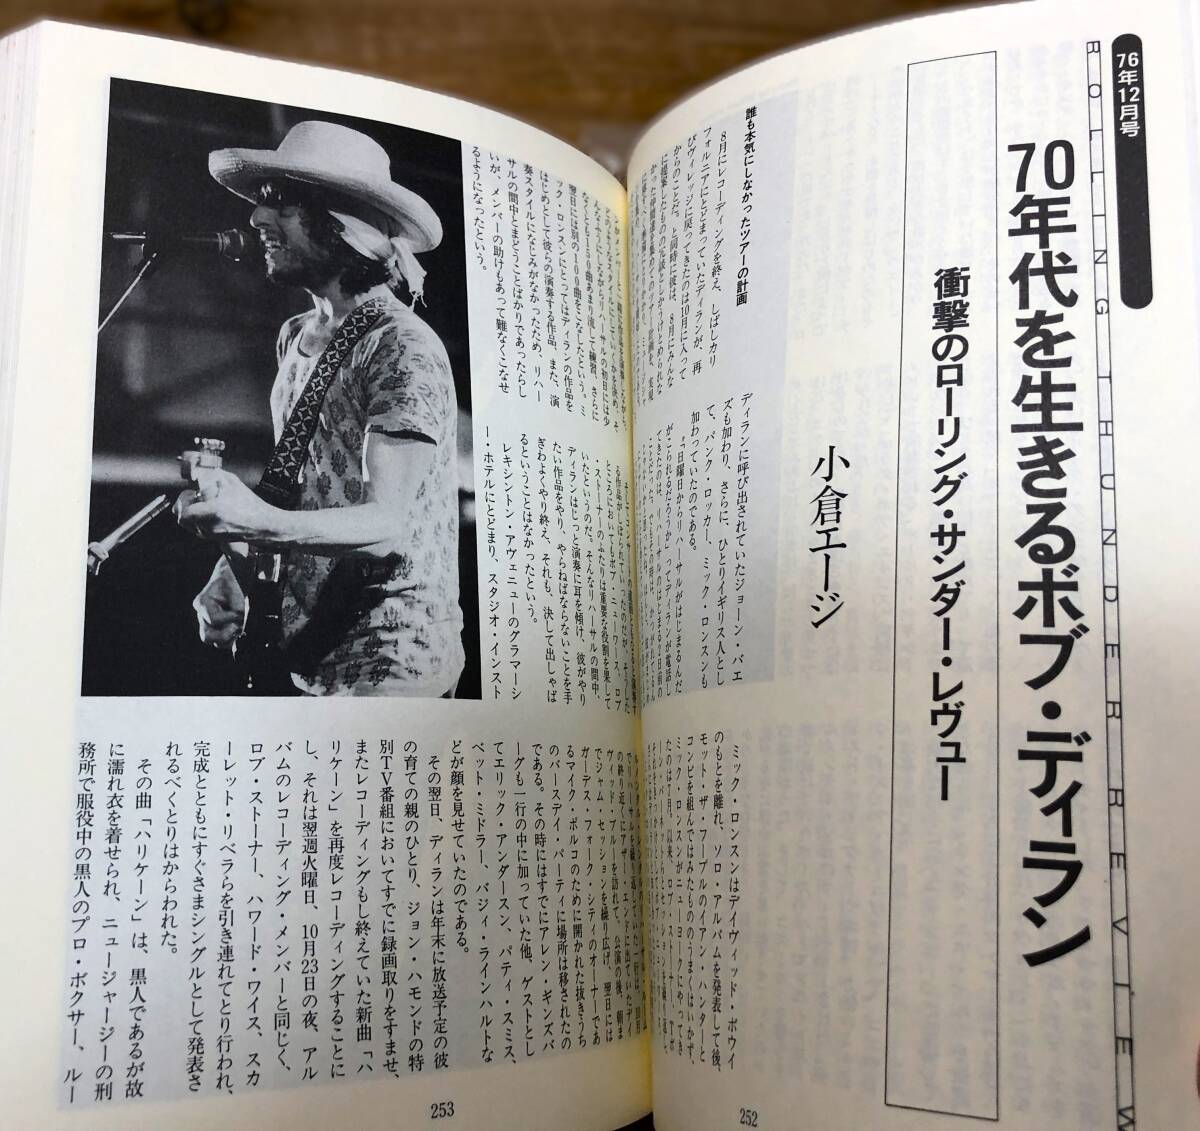 76年12月号
ROLLING THUNDER REVIEW
70年代を生きるボブ・ディラン
衝撃のローリング・サンダー・レヴュー
小倉エージ
誰も本気にしなかったツアーの計画
8月にレコーディングを終え、しばしカリ
フォルニアにとどまっていたディランが、再
びヴィレッジに戻ってきたのは10月に入って
からのことだ。と同時に彼は、8月にみんな
ディランに呼び出されていたジョーン・バエ
ズも加わり、さらに、ひとりイギリス人とし
て、パンク・ロッカー、ミック・ロンスンも
加わっていたのである。
"日曜日からリハーサルがはじまるんだ
がこられるだろうか"ってディランが電話し
てきたのは、リハーサルのはじまる2日前の
ミック・ロンスンはデイヴィッド・ボウイ
のもとを離れ、ソロ・アルバムを発表して後、
モット・ザ・フープルのイアン・ハンターと
コンビを組んではみたもののうまくはいかず、
ミック・ロンスンがニューヨークにやってき
たのは7月。以来、ロブ・ストーナー、Tボ
252
なくとも150曲あまり流して練習。さらに
翌日には別の100曲をこなしたという。ミ
ック・ロンスンにとってはディランの作品を
はじめとして彼らの演奏する作品、また、演
奏スタイルになじみがなかったため、リハー
サルの間中とまどうことばかりであったらし
いが、メンバーの助けもあって難なくこなせ
るようになったという。
ところにおいてもボブ・ニューワース、ロブ
・ストーナーのふたりは重要な役割を果して
いたというのだ。そんなリハーサルの間中、
ディランはじっと演奏に耳を傾け、彼がやり
たい作品をやり、やらねばならないことを手
ぎわよくやり終え、それも、決して出しゃば
るということはなかったという。
レキシントン・アヴェニューのグラマーシ
ー・ホテルにとどまり、スタジオ・インスト
の終り近くにアザー・エンドに出ていたデイ
ヴィッド・ブルーを訪れて、公演の後、朝ま
でジャム・セッションを繰り広げ、翌日には
ガーデス・フォーク・シティのオーナーであ
るマイク・ポルコのために開かれた抜きうち
のバースデイ・パーティに場所は移されたの
である。その時にはすでにアレン・ギンズバ
ーグも一行の中に加っていた他、ゲストとし
てエリック・アンダースン、パティ・スミス、
ベット・ミドラー、バジィ・ラインハルトな
どが顔を見せていたのである。
その翌日、ディランは年末に放送予定の彼
の育ての親のひとり、ジョン・ハモンドの特
別TV番組においてすでに録画取りをすませ、
またレコーディングもし終えていた新曲「ハ
リケーン」を再度レコーディングすることに
し、それは翌週火曜日、10月23日の夜、アル
バムのレコーディング・メンバーと同じく、
ロブ・ストーナー、ハワード・ワイス、スカ
ーレット・リベラらを引き連れてとり行われ、
完成とともにすぐさまシングルとして発表さ
れるべくとりはからわれた。
その曲「ハリケーン」は、黒人であるが故
に濡れ衣を着せられ、ニュージャージーの刑
務所で服役中の黒人のプロ・ボクサー、ルー
253